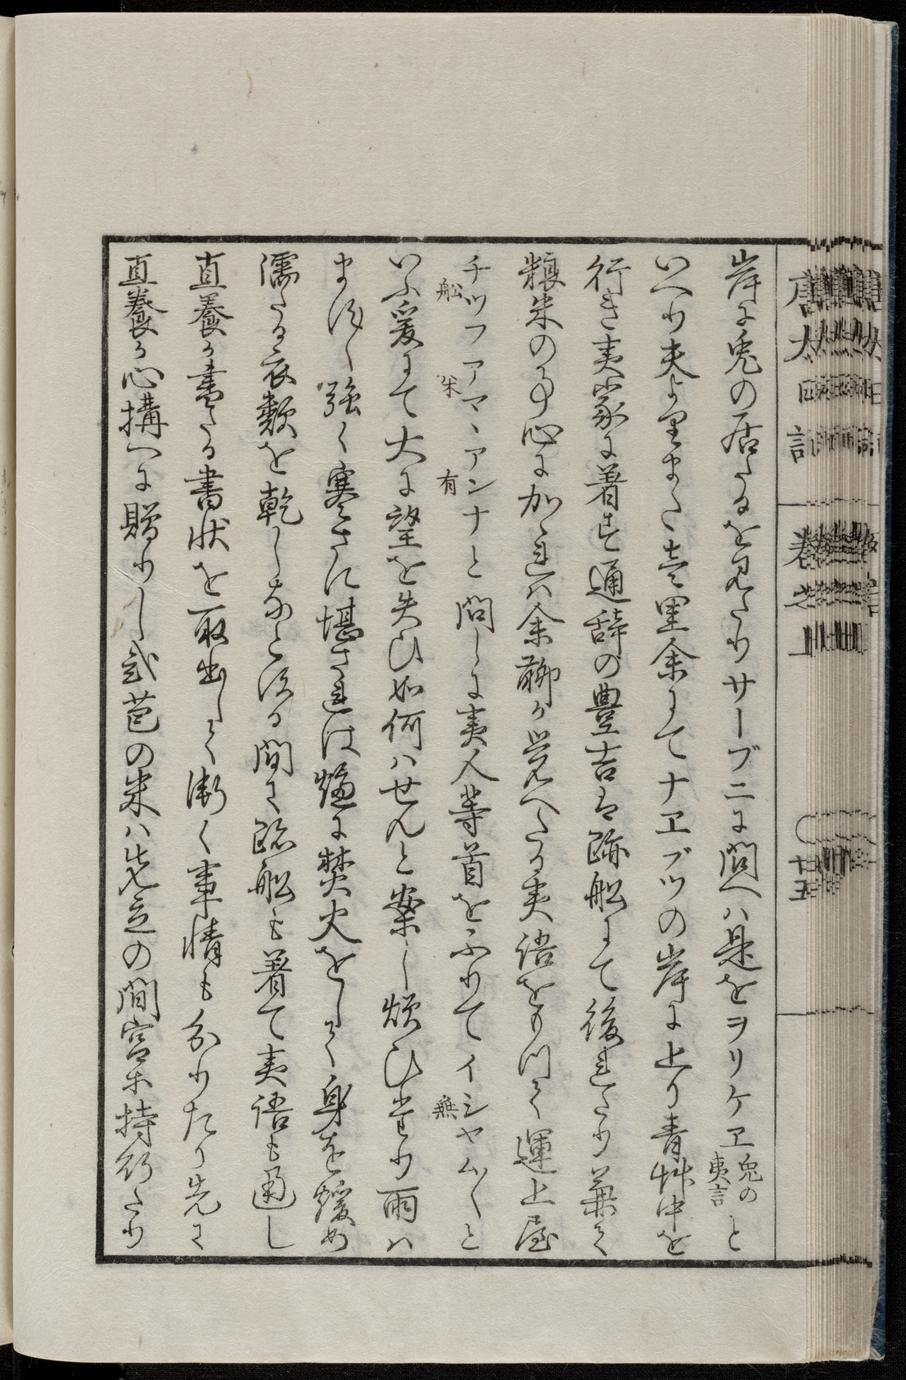 岸に兎の居たるを見たりサーブニに問へハ是をヲリケヱ兎の夷言と
いへり夫より里また壱里余にてナヱブツの岸に上り青艸中を
行き夷家に着す通辞の豊吉は跡船にて後れたり兼て
粮米の事心に加ゝれハ余聊か覚へたる夷語をもつて運上屋
チツフアマヽアンナと問しに夷人等首をふりてイシヤム〱と
船 米 有 無
いふ爰にて大に望を失ひ如何ハせんと案し煩ひ遣り雨ハ
ます〱強く寒さに堪されは爐に焚火をして身を煖め
濡たる衣類を乾しなとする間に跡船も着て夷語も通し
直養か書たる書状を取出して漸く事情も分りたり先に
直養か心構へに贈りし弐苞の米ハ先立の間宮ホ持行たり
唐太日記 巻之上 廿五